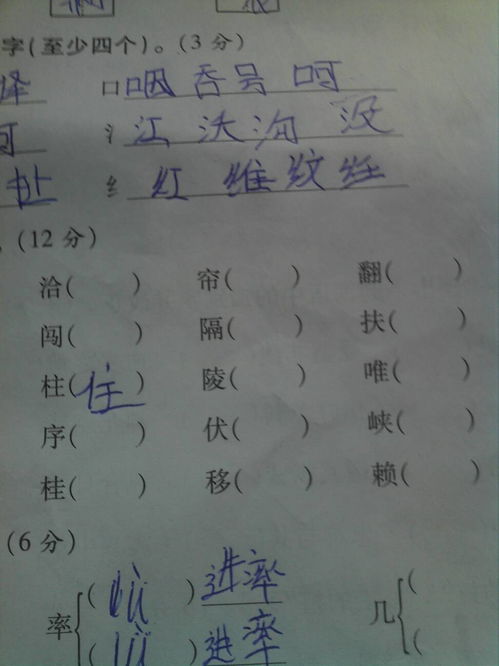 字(至少四个)。(3 分)
口 咽 吞 号 呵
氵 江 沃 沟 没
纟 红 维 纹 经
(12 分)
洽( ) 帘( ) 翻( )
闯( ) 隔( ) 扶( )
柱(住) 陵( ) 唯( )
序( ) 伏( ) 峡( )
桂( ) 移( ) 赖( )
(6 分)
( lǜ ) 进率
率 几
( lǜ ) 进率